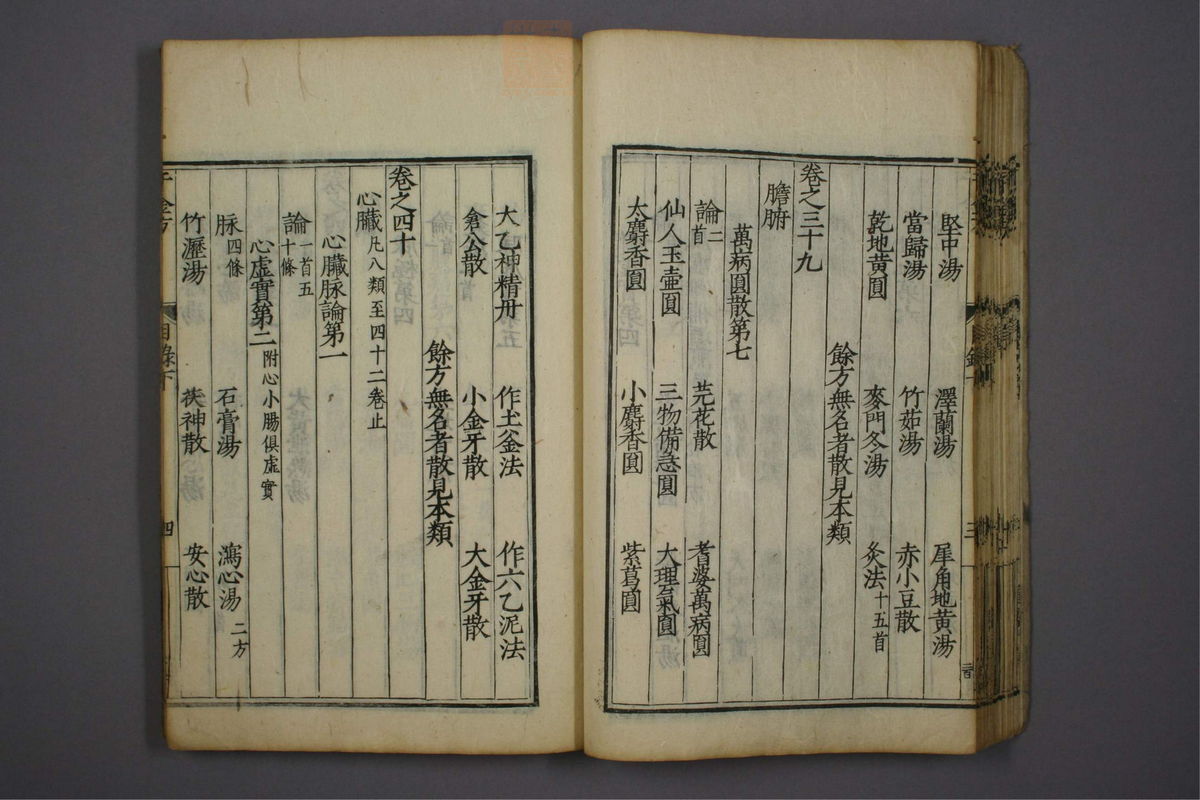 堅中湯 澤蘭湯 犀角地黄湯
當歸湯 竹茹湯 赤小豆散
乾地黄圓 麥門冬湯 灸法十五首
餘方無名者散見本類
卷之三十九
膽腑
萬病圓散第七
論二首 芫花散 耆婆萬病圓
仙人玉壷圓 三物備急圓 大理氣圓
太麝香圓 小麝香圓 紫葛圓
大乙神精丹 作土釜法 作六乙泥法
倉公散 小金牙散 大金牙散
餘方無名者散見本類
卷之四十
心臟凡八類至四十二卷止
心臟脉論第一
論一首五十條
心虛實第二附心小腸俱虛實
脉四條 石膏湯 瀉心湯二方
竹瀝湯 茯神散 安心散
目錄下
四